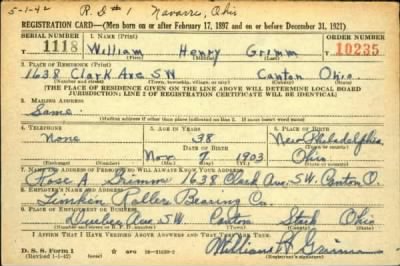 5-1-42 R.D#1 Navarre, Ohio
REGISTRATION CARD—(Men born on or after February 17, 1897 and on or before December 31, 1921)
SERIAL NUMBER 1. NAME (Print) ORDER NUMBER
1118 William Henry Grimm 10235
(First) (Middle) (Last)
2. PLACE OF RESIDENCE (Print)
1638 Clark Ave SW Canton Ohio
(Number and street) (Town, township, village, or city) (County) (State)
[THE PLACE OF RESIDENCE GIVEN ON THE LINE ABOVE WILL DETERMINE LOCAL BOARD
JURISDICTION; LINE 2 OF REGISTRATION CERTIFICATE WILL BE IDENTICAL]
3. MAILING ADDRESS
Same
[Mailing address if other than place indicated on line 2. If same insert word same]
4. TELEPHONE 5. AGE IN YEARS 6. PLACE OF BIRTH
None 38 New Philadelphia
DATE OF BIRTH
Nov 7 1903 Ohio
(Mo.) (Day) (Yr.)
7. NAME AND ADDRESS OF PERSON WHO WILL ALWAYS KNOW YOUR ADDRESS
Rose A. Grimm 1638 Clark Ave, SW. Canton O.
8. EMPLOYER'S NAME AND ADDRESS
Timken Roller Bearing Co.
9. PLACE OF EMPLOYMENT OR BUSINESS
Dueber Ave S.W. Canton Stark Ohio
(Number and street or R. F. D. number) (Town) (County) (State)
I AFFIRM THAT I HAVE VERIFIED ABOVE ANSWERS AND THAT THEY ARE TRUE.
D. S. S. Form 1
(Revised 1-1-42) (over) William H Grimm